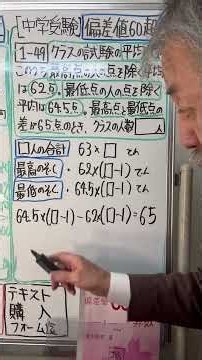 [中学受験] 偏差値60超
1-49 クラスの試験の平均
最高点の人の点を除く
は62点、最低点の人の点を除く
平均は64.5点、最高点と最低点の
差が65点のとき、クラスの人数□人
□人の合計 63×□ てん
最高のぞく・62×(□-1) てん
最低のぞく・64.5×(□-1) てん
64.5×(□-1)-62×(□-1)=65
テキスト
購入
フォーム
偏差値